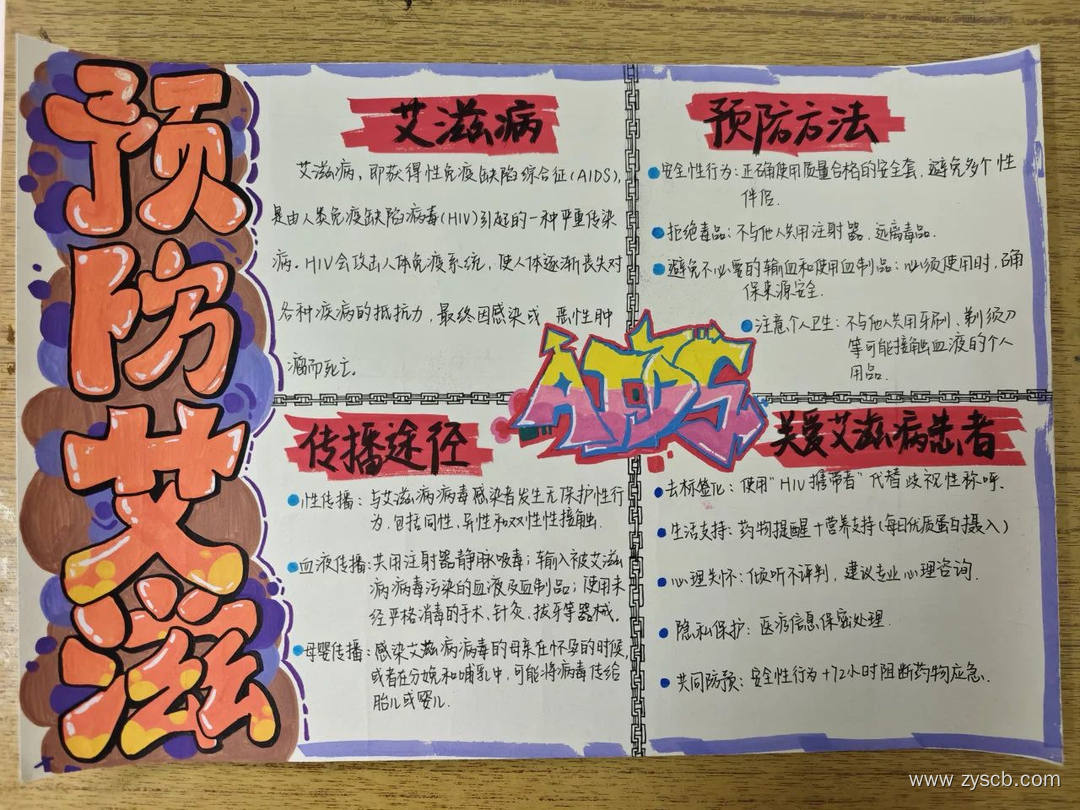 预防艾滋
艾滋病
艾滋病，即获得性免疫缺陷综合征(AIDS)，
是由人类免疫缺陷病毒(HIV)引起的一种严重传染
病。HIV会攻击人体免疫系统，使人体逐渐丧失对
各种疾病的抵抗力，最终因感染或 恶性肿
瘤而死亡。
预防方法
安全性行为：正确使用质量合格的安全套，避免多个性
伴侣.
拒绝毒品：不与他人共用注射器，远离毒品.
避免不必要的输血和使用血制品：必须使用时，确
保来源安全.
注意个人卫生：不与他人共用牙刷、剃须刀
等可能接触血液的个人
用品.
AIDS
传播途径
性传播：与艾滋病病毒感染者发生无保护性行
为，包括同性，异性和双性性接触.
血液传播：共用注射器静脉吸毒；输入被艾滋
病病毒污染的血液及血制品；使用未
经严格消毒的手术、针灸、拔牙等器械.
母婴传播：感染艾滋病病毒的母亲在怀孕的时候，
或者在分娩和哺乳中，可能将病毒传给
胎儿或婴儿.
关爱艾滋病患者
去标签化：使用"HIV携带者"代替歧视性称呼.
生活支持：药物提醒+营养支持(每日优质蛋白摄入)
心理关怀：倾听不评判，建议专业心理咨询.
隐私保护：医疗信息保密处理.
共同防预：安全性行为+72小时阻断药物应急.
www.zyscb.com